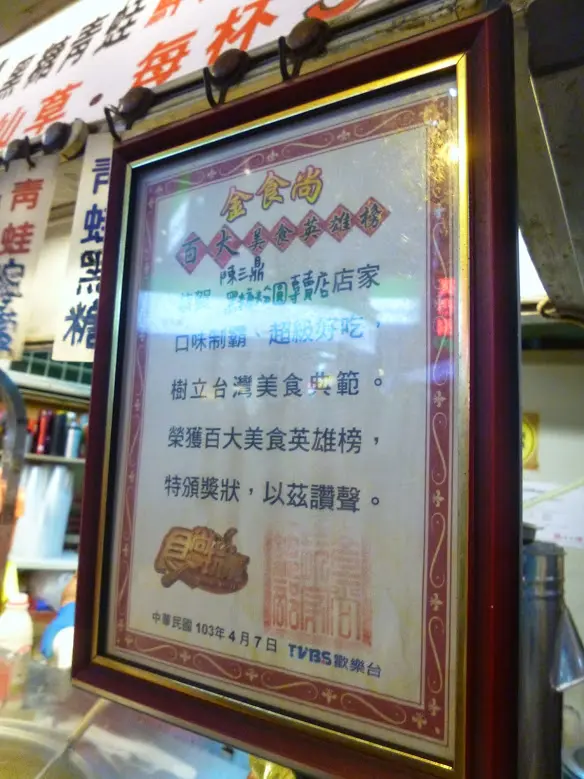 黑糖青蛙
仙草・每杯
青蛙
青蛙黑糖
金食尚
百大美食英雄榜
陳三鼎
特賀 黑糖粉圓專賣店店家
口味制霸、超級好吃，
樹立台灣美食典範。
榮獲百大美食英雄榜，
特頒獎狀，以茲讚聲。
中華民國 103年 4 月 7 日 TVBS歡樂台